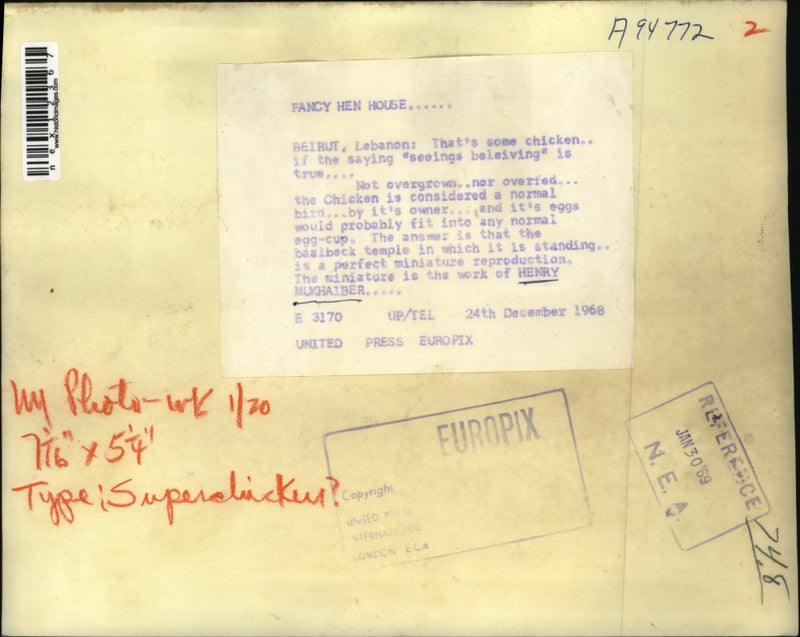 A94772 2
nex12367
www.historicimages.com
FANCY HEN HOUSE......
BEIRUT, Lebanon: That's some chicken..
if the saying "seeings beleiving" is
true....
Not overgrown..nor overfed...
the Chicken is considered a normal
bird...by it's owner....and it's eggs
would probably fit into any normal
egg-cup. The answer is that the
baalbeck temple in which it is standing..
is a perfect miniature reproduction.
The miniature is the work of HENRY
MUKHAIBER.....
E 3170 UP/TEL 24th December 1968
UNITED PRESS EUROPIX
NY Photo-wk 1/20
7 1/16" x 5 1/4"
Type: Superchicken?
EUROPIX
Copyright
UNITED PRESS
INTERNATIONAL
LONDON E.C.4
REFERENCE
JAN 30 '69
N. E. A.